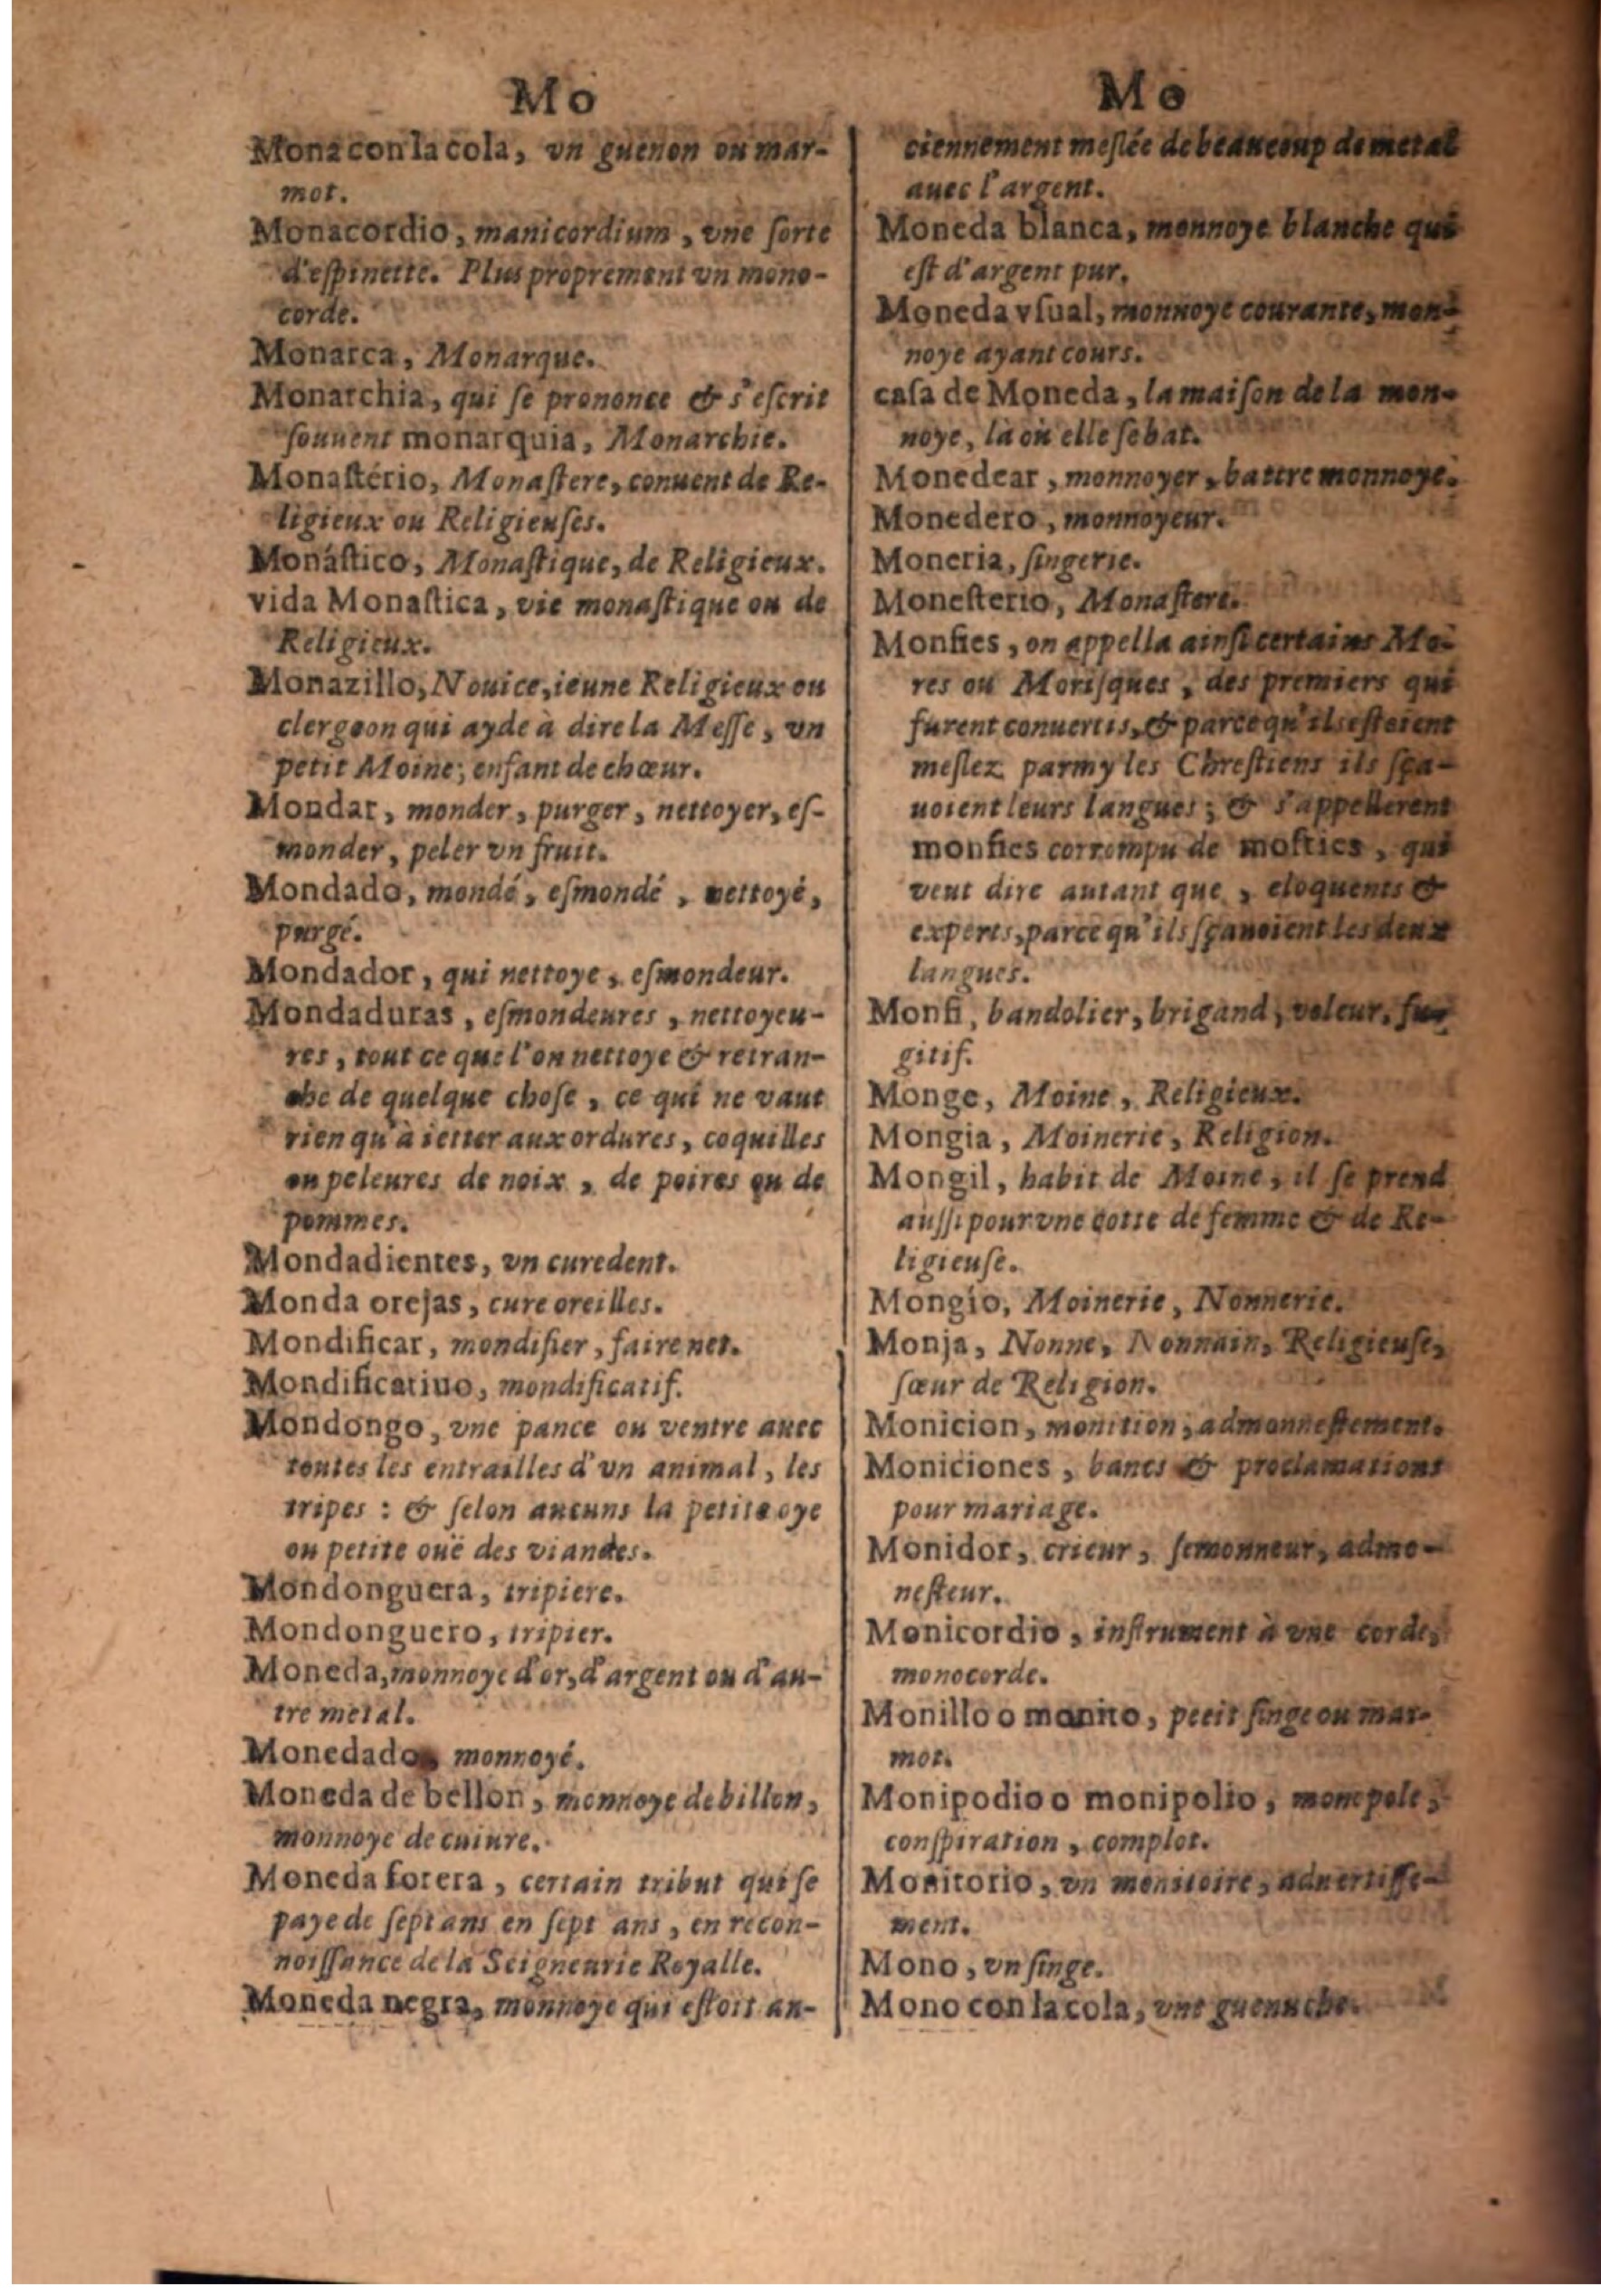 Mo
Mona con la cola, vn guenon ou mar-
mot.
Monacordio, manicordium, vne ſorte
d'eſpinette. Plus proprement vn mono-
corde.
Monarca, Monarque.
Monarchia, qui ſe prononce & s'eſcrit
ſouuent monarquia, Monarchie.
Monaſtério, Monaſtere, conuent de Re-
ligieux ou Religieuſes.
Monáſtico, Monaſtique, de Religieux.
vida Monaſtica, vie monaſtique ou de
Religieux.
Monazillo, Nouice, ieune Religieux ou
clergeon qui ayde à dire la Meſſe, vn
petit Moine; enfant de chœur.
Mondar, monder, purger, nettoyer, eſ-
monder, peler vn fruit.
Mondado, mondé, eſmondé, nettoyé,
purgé.
Mondador, qui nettoye, eſmondeur.
Mondaduras, eſmondeures, nettoyeu-
res, tout ce que l'on nettoye & retran-
che de quelque choſe, ce qui ne vaut
rien qu'à ietter aux ordures, coquilles
ou peleures de noix, de poires ou de
pommes.
Mondadientes, vn curedent.
Monda orejas, cure oreilles.
Mondificar, mondifier, faire net.
Mondificatiuo, mondificatif.
Mondongo, vne pance ou ventre auec
toutes les entrailles d'vn animal, les
tripes : & ſelon aucuns la petite oye
ou petite ouë des viandes.
Mondonguera, tripiere.
Mondonguero, tripier.
Moneda, monnoye d'or, d'argent ou d'au-
tre metal.
Monedado, monnoyé.
Moneda de bellon, monnoye de billon,
monnoye de cuiure.
Moneda forera, certain tribut qui ſe
paye de ſept ans en ſept ans, en recon-
noiſſance de la Seigneurie Royalle.
Moneda negra, monnoye qui eſtoit an-
Mo
ciennement meſlée de beaucoup de metal
auec l'argent.
Moneda blanca, monnoye blanche qui
eſt d'argent pur.
Moneda vſual, monnoye courante, mon-
noye ayant cours.
caſa de Moneda, la maiſon de la mon-
noye, là où elle ſe bat.
Monedear, monnoyer, battre monnoye.
Monedero, monnoyeur.
Moneria, ſingerie.
Moneſterio, Monaſtere.
Monfies, on appella ainſi certains Mo-
res ou Moriſques, des premiers qui
furent conuertis, & parce qu'ils eſtoient
meſlez parmy les Chreſtiens ils ſça-
uoient leurs langues; & s'appellerent
monfies corrompu de moſties, qui
veut dire autant que, eloquents &
experts, parce qu'ils ſçauoient les deux
langues.
Monfi, bandolier, brigand, voleur, fu-
gitif.
Monge, Moine, Religieux.
Mongia, Moinerie, Religion.
Mongil, habit de Moine, il ſe prend
auſſi pour vne cotte de femme & de Re-
ligieuſe.
Mongio, Moinerie, Nonnerie.
Monja, Nonne, Nonnain, Religieuſe,
ſœur de Religion.
Monicion, monition, admonneſtement.
Moniciones, bancs & proclamations
pour mariage.
Monidor, crieur, ſemonneur, admo-
neſteur.
Monicordio, inſtrument à vne corde,
monocorde.
Monillo o monito, petit ſinge ou mar-
mot.
Monipodio o monipolio, monopole,
conſpiration, complot.
Monitorio, vn monitoire, aduertiſſe-
ment.
Mono, vn ſinge.
Mono con la cola, vne guenuche.